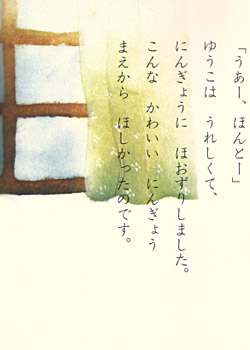 「うあー、ほんとー」
ゆうこは　うれしくて、
にんぎょうに　ほおずりしました。
こんな　かわいい　にんぎょう
まえから　ほしかったのです。